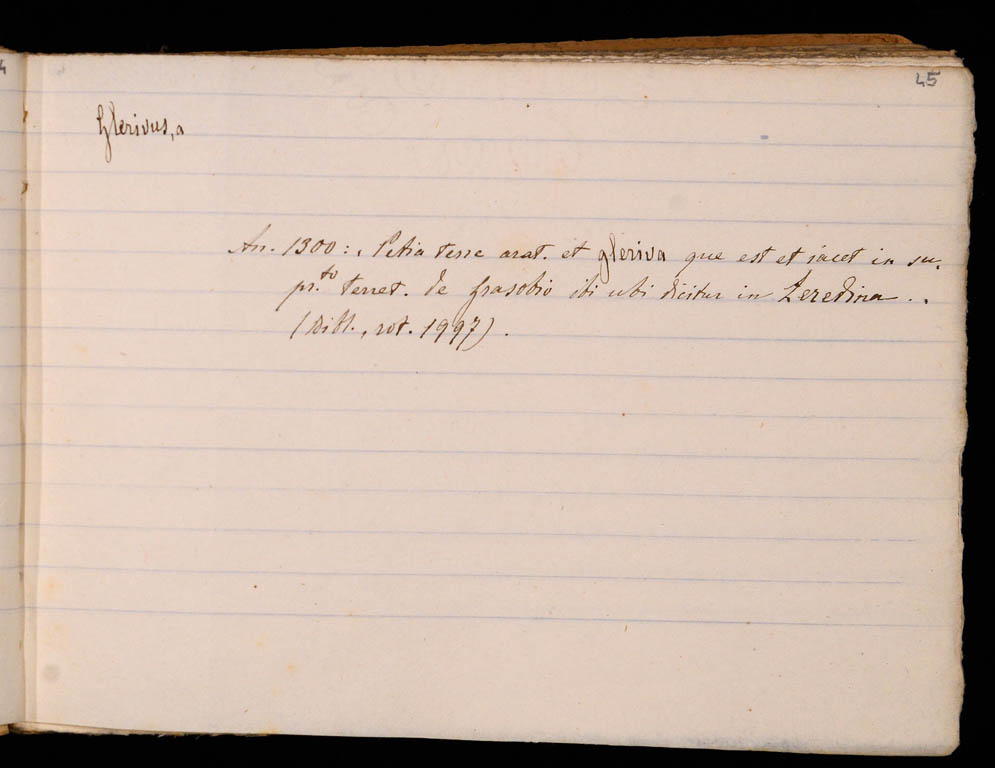 45
Glerivus, a
An. 1300: Petia terre arat. et gleriva que est et iacet in su-
pr.to terret. de Grasobio ibi ubi dicitur in Zeredina ..
(Bibl., rot. 1997).